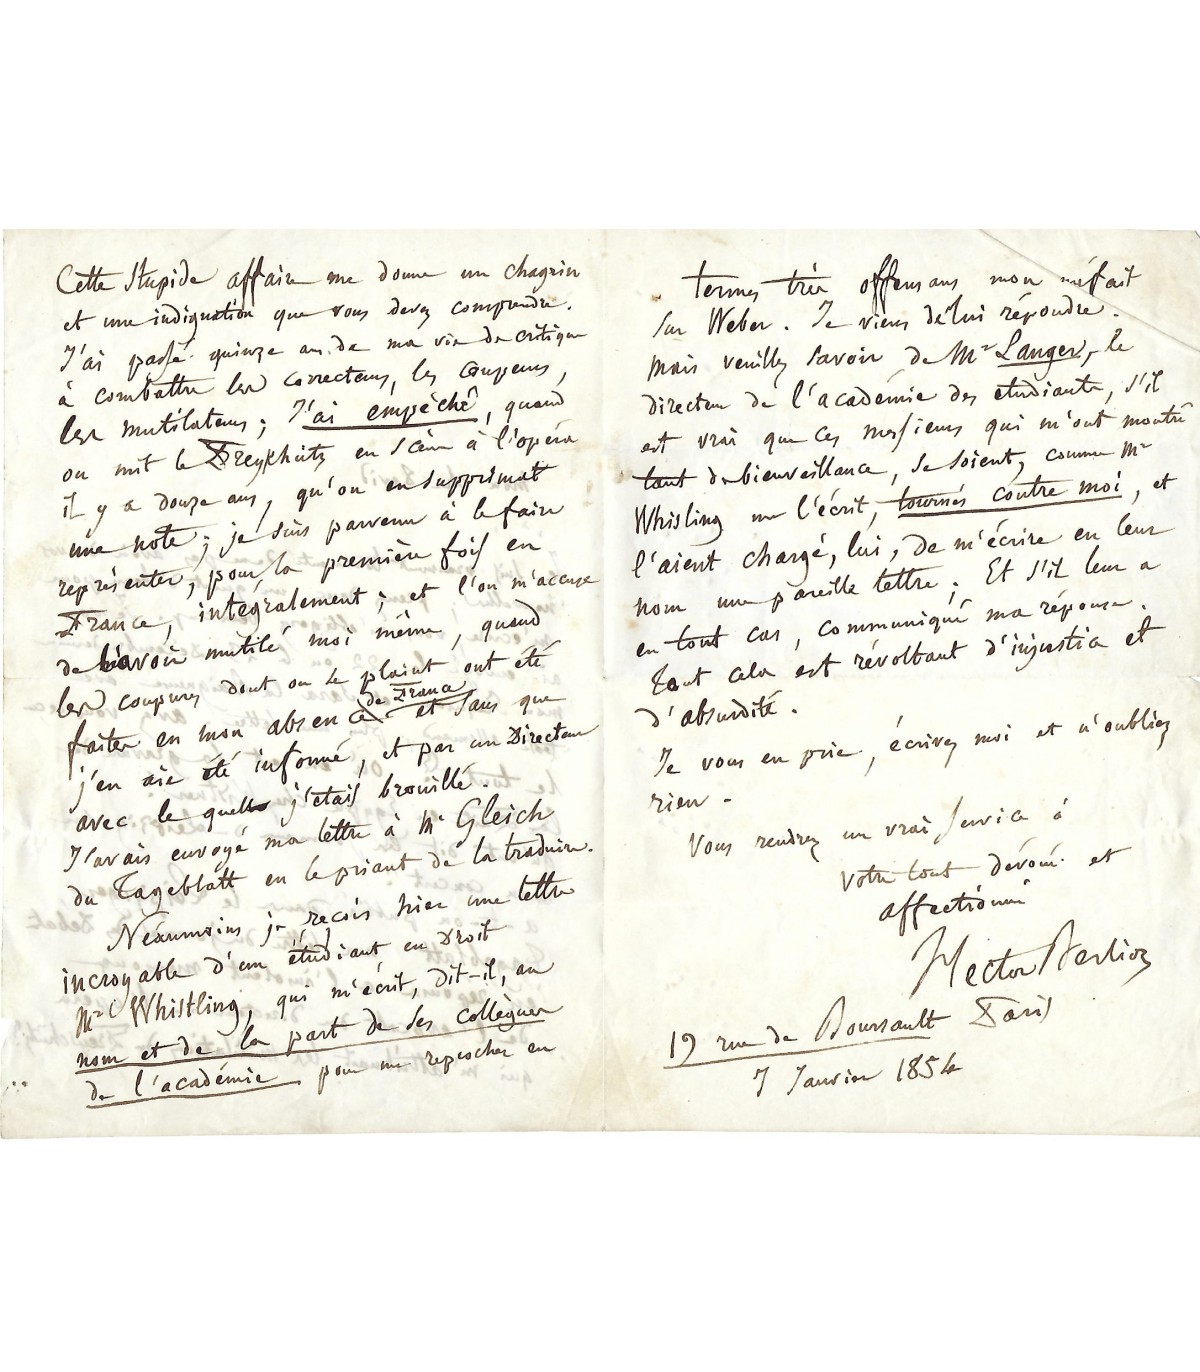 Cette stupide affaire me donne un chagrin
et une indignation que vous devez comprendre.
J'ai passé quinze ans de ma vie de critique
à combattre les correcteurs, les coupeurs,
les mutilateurs; J'ai empêché, quand
on mit le Freyschütz en scène à l'opéra
il y a douze ans, qu'on en supprimat
une note; je suis parvenu à le faire
représenter, pour la première fois en
France, intégralement; et l'on m'accuse
de l'avoir mutilé moi même, quand
les coupures dont on se plaint ont été
de France
faites en mon absence et sans que
j'en aie été informé, et par un Directeur
avec lequel j'étais brouillé.
J'avais envoyé ma lettre à Mr Gleich
du Tageblatt en le priant de la traduire.
Néanmoins je reçois hier une lettre
incroyable d'un étudiant en Droit
Mr Whistling, qui m'écrit, dit-il, au
nom et de la part de ses collègues
de l'académie pour me reprocher en
termes très offensans mon méfait
sur Weber. Je viens de lui répondre.
Mais veuillez savoir de Mr Langer, le
directeur de l'académie des etudiants, s'il
est vrai que ces messieurs qui m'ont montré
tant de bienveillance, se soient, comme Mr
Whisling me l'écrit, tournés contre moi, et
l'aient chargé, lui, de m'écrire en leur
nom une pareille lettre; Et s'il leur a
en tout cas, communiqué ma réponse.
Tout cela est révoltant d'injustice et
d'absurdité.
Je vous en prie, écrivez moi et n'oubliez
rien.
Vous rendrez un vrai service à
votre tout dévoué et
affectionné
Hector Berlioz
19 rue de Boursault Paris
7 Janvier 1854